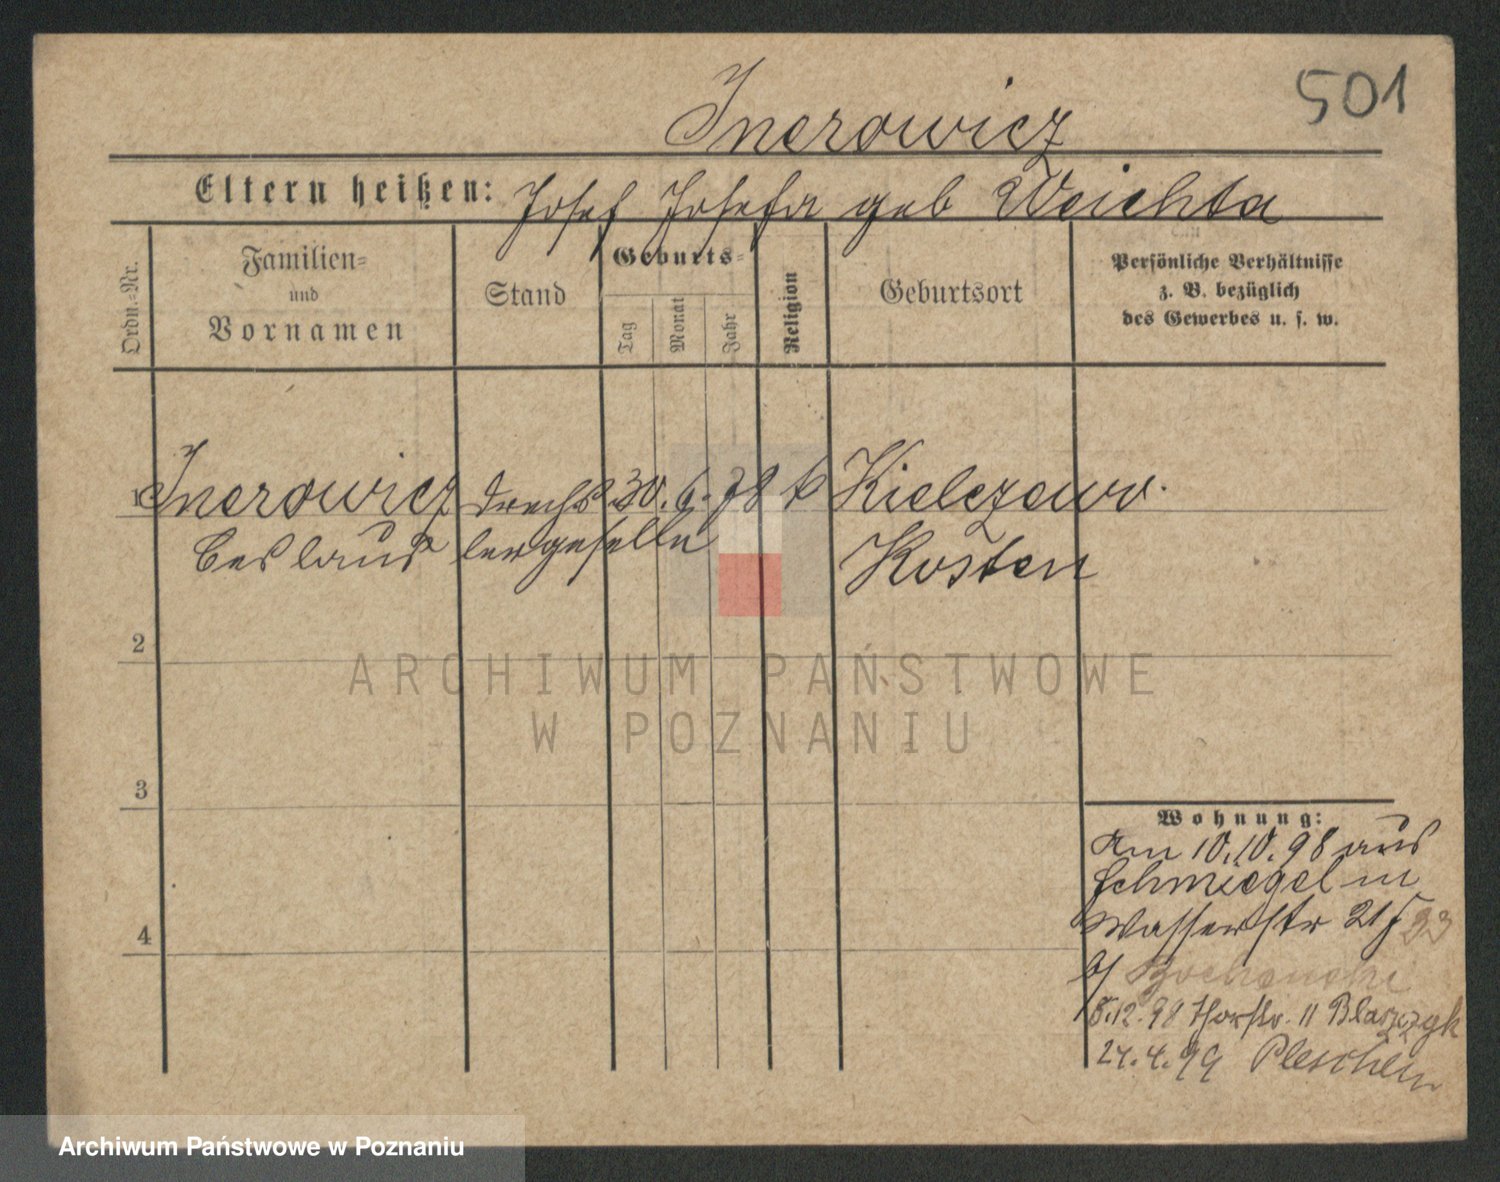 501
Inerowicz
Eltern heißen: Josef Josefa geb Weichta
Ordn.-Nr.
Familien-
und
Vornamen
Stand
Geburts-
Tag
Monat
Jahr
Religion
Geburtsort
Persönliche Verhältnisse
z. B. bezüglich
des Gewerbes u. s. w.
1 Inerowicz Drechs 30. 6. 78 k Kielczewo.
Ceslaus lergeselle Kosten
2
3
4
ARCHIWUM PAŃSTWOWE
W POZNANIU
Wohnung:
Am 10.10.98 aus
Schmiegel in
Wasserstr 21
b/
5.12.98 Thorstr. 11 Blaszzyk
24.4.99 Pleschen
Archiwum Państwowe w Poznaniu